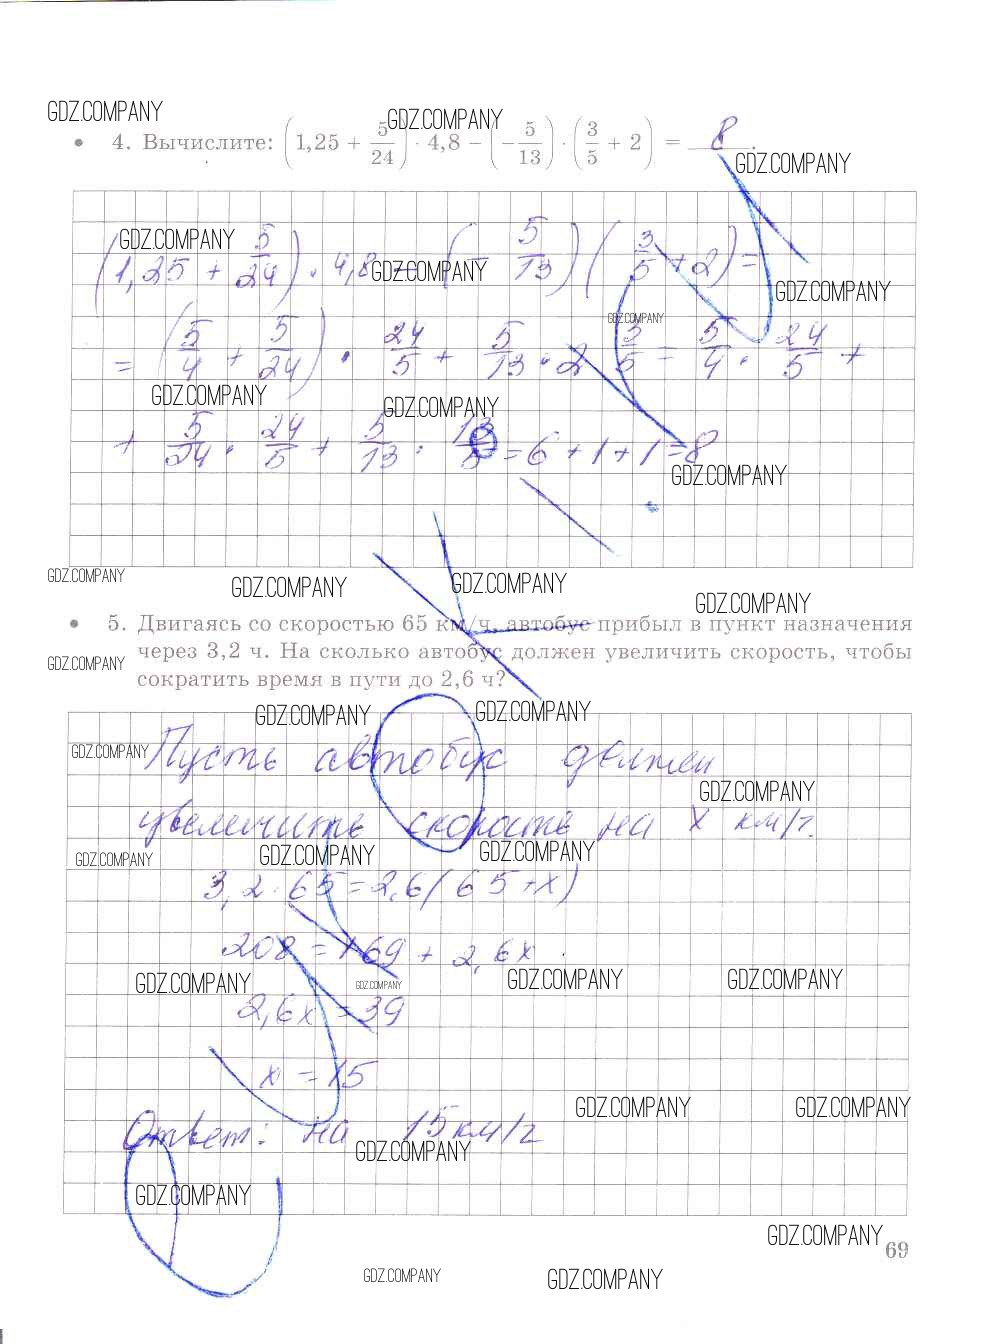 GDZ.COMPANY
GDZ.COMPANY
• 4. Вычислите: (1,25 + 5/24) · 4,8 − (−5/13) · (3/5 + 2) = 8.
GDZ.COMPANY
GDZ.COMPANY
(1,25 + 5/24) · 4,8 − (− 5/13) (3/5 + 2) =
GDZ.COMPANY
GDZ.COMPANY
GDZ.COMPANY
= (5/4 + 5/24) · 24/5 + 5/13 · 2 3/5 = 5/4 · 24/5 +
GDZ.COMPANY
GDZ.COMPANY
+ 5/24 · 24/5 + 5/13 · 13/5 = 6 + 1 + 1 = 8
GDZ.COMPANY
GDZ.COMPANY
GDZ.COMPANY
GDZ.COMPANY
GDZ.COMPANY
• 5. Двигаясь со скоростью 65 км/ч, автобус прибыл в пункт назначения
через 3,2 ч. На сколько автобус должен увеличить скорость, чтобы
GDZ.COMPANY
сократить время в пути до 2,6 ч?
GDZ.COMPANY
GDZ.COMPANY
GDZ.COMPANY
Пусть автобус должен
GDZ.COMPANY
увеличить скорость на x км/ч.
GDZ.COMPANY
GDZ.COMPANY
GDZ.COMPANY
3,2 · 65 = 2,6 (65 + x)
208 = 169 + 2,6x
GDZ.COMPANY
GDZ.COMPANY
GDZ.COMPANY
GDZ.COMPANY
2,6x = 39
x = 15
GDZ.COMPANY
GDZ.COMPANY
Ответ: на 15 км/ч
GDZ.COMPANY
GDZ.COMPANY
GDZ.COMPANY
69
GDZ.COMPANY
GDZ.COMPANY